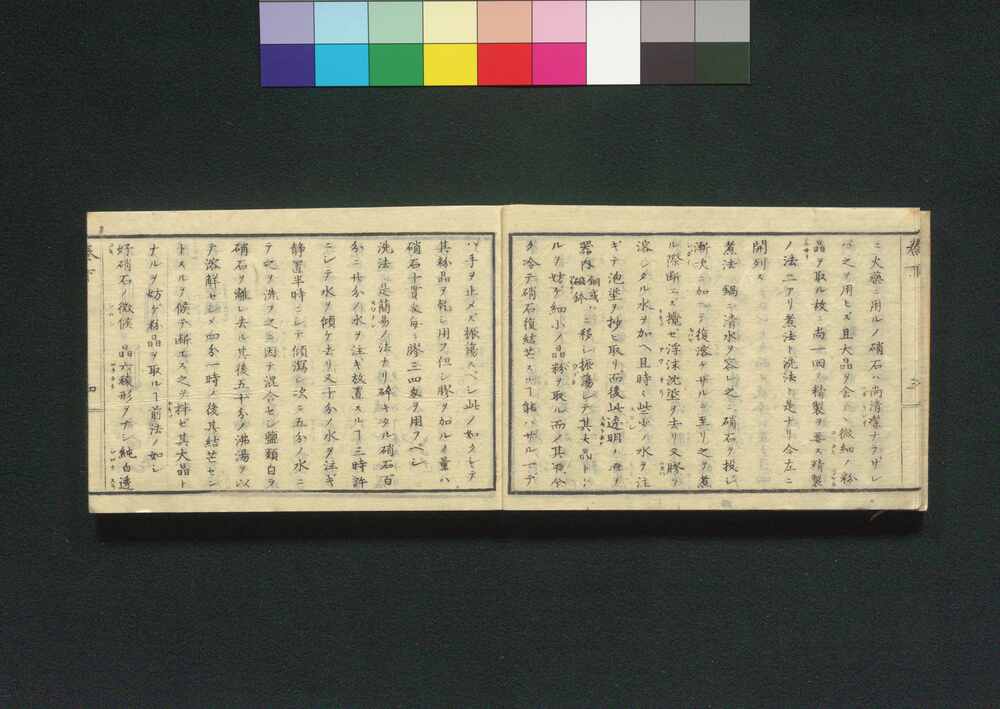 ニ火薬ニ用ルノ硝石ハ尚清潔ナラザレ
バ之ヲ用ヒズ且大晶ヲ去 微細ノ粉
晶ヲ取ル故ニ尚一回ノ精製ヲ要ス精製
ノ法二アリ煮法ト洗法ト是ナリ今左ニ
開列ス
煮法 鍋ニ清水ヲ容レ之ニ硝石ヲ投シ
漸次ニ加ヘテ復溶ケザルニ至リ之ヲ煮
ル際断ニス攪セ浮沫沈垽ヲ去リ又膠ヲ
溶シタル水ヲ加ヘ且時々些少ノ水ヲ注
ギテ泡垽ヲ抄ヒ取リ而後此透明ノ液ヲ
器内銅或ハ磁鉢ニ移シ振蕩シテ其大晶トナ
ルヲ妨ゲ細小ノ晶粉ヲ取ル而ノ其液全
ク冷テ硝石復結芒スルヿ能ハザルニ至テ
ハ手ヲ止メズ振蕩スベシ此ノ如クシテ
其粉晶ヲ乾シ用ヲ但シ膠ヲ加ルノ量ハ
硝石十貫目毎ニ膠三四匁ヲ用フベシ
洗法 是簡易ノ法ナリ砕キタル硝石百
分ニ廿分ノ水ヲ注ギ放置スルヿ三時許
ニシテ水ヲ傾ケ去リ又十分ノ水ヲ注ギ
静置半時ニシテ傾瀉シ次ニ五分ノ水ニ
テ之ヲ洗フ之ニ因テ混合セシ鹽類自ラ
硝石ヲ離レ去ル其後五十分ノ沸湯ヲ以
テ溶解セシメ四分一時ノ後其結芒セン
トスルヲ候テ断エズ之ヲ拌ゼ其大晶ト
ナルヲ妨ゲ粉晶ヲ取ルヿ前法ノ如シ
好硝石ノ徴候 晶六稜形ヲナシ純白透